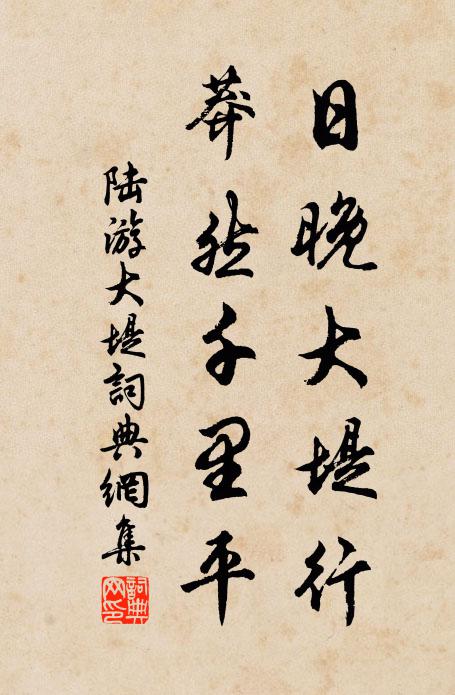 日晚大堤行
莽然千里平
陆游大堤詞典網集
詞典网印